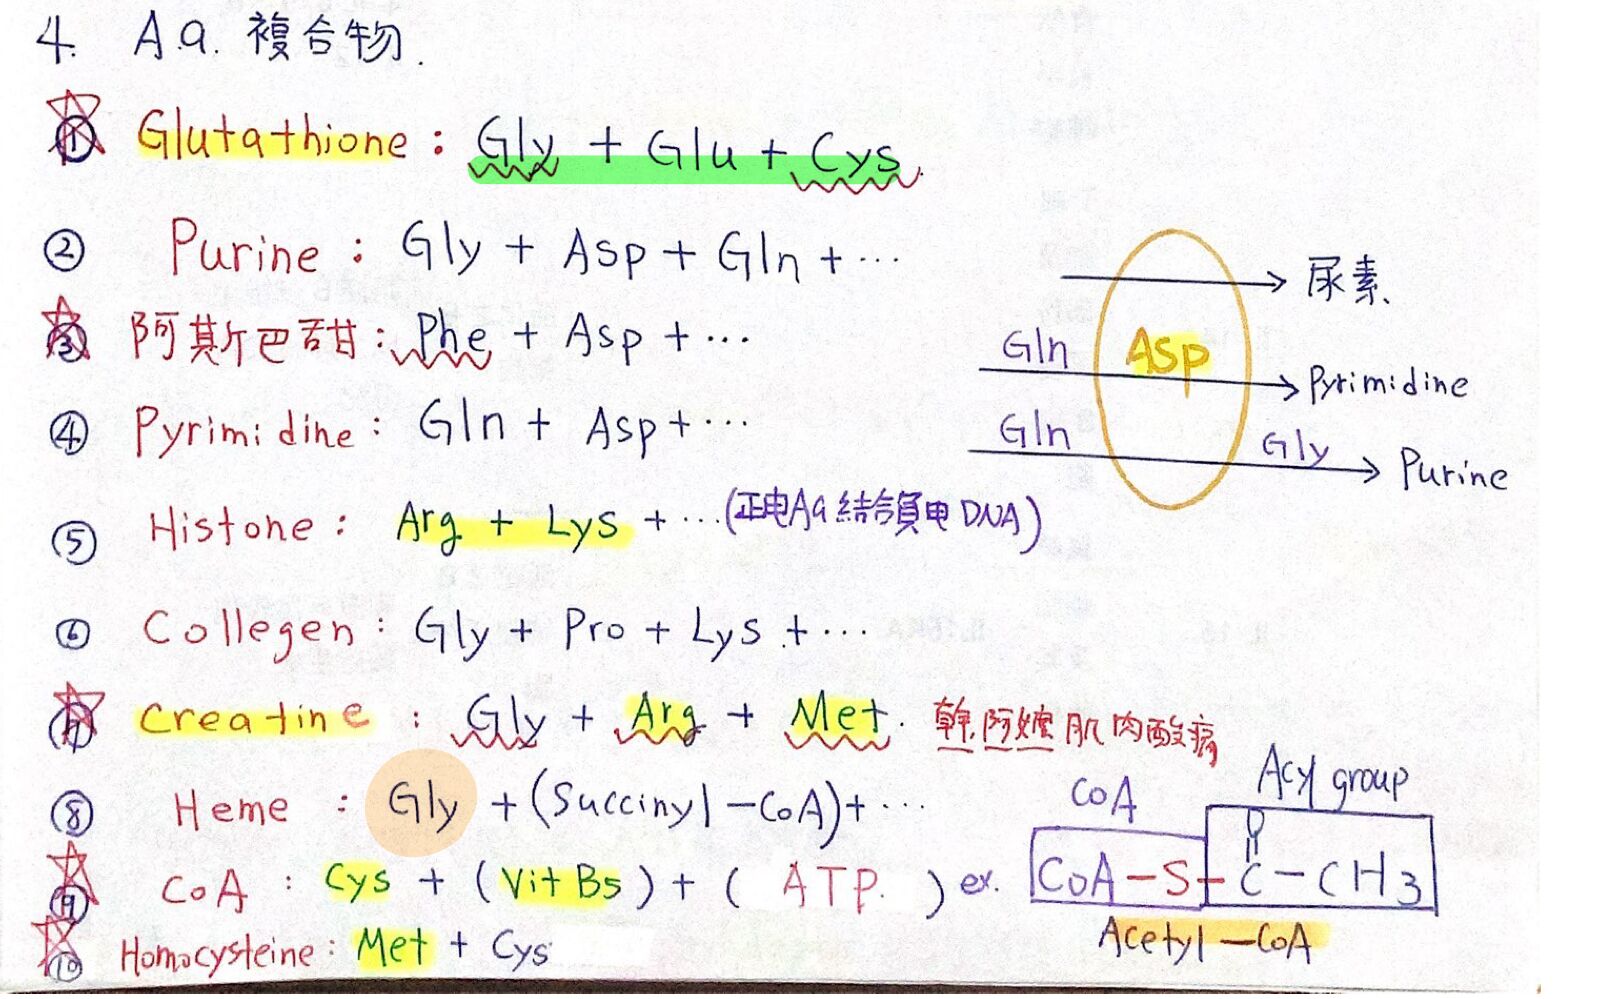 4. A.a. 複合物.
① Glutathione: Gly + Glu + Cys.
② Purine: Gly + Asp + Gln + ...
③ 阿斯巴甜: Phe + Asp + ...
④ Pyrimidine: Gln + Asp + ...
→ 尿素
Gln Asp → Pyrimidine
Gln Gly → Purine
⑤ Histone: Arg + Lys + ... (正电Aa結合負电 DNA)
⑥ Collegen: Gly + Pro + Lys + ...
⑦ Creatine: Gly + Arg + Met. 阿嬤肌肉酸痛
⑧ Heme: Gly + (Succinyl-CoA) + ...
⑨ CoA: Cys + (Vit B5) + (ATP.) ex.
CoA Acyl group
CoA-S-C-CH3
O
Acetyl-CoA
⑩ Homocysteine: Met + Cys